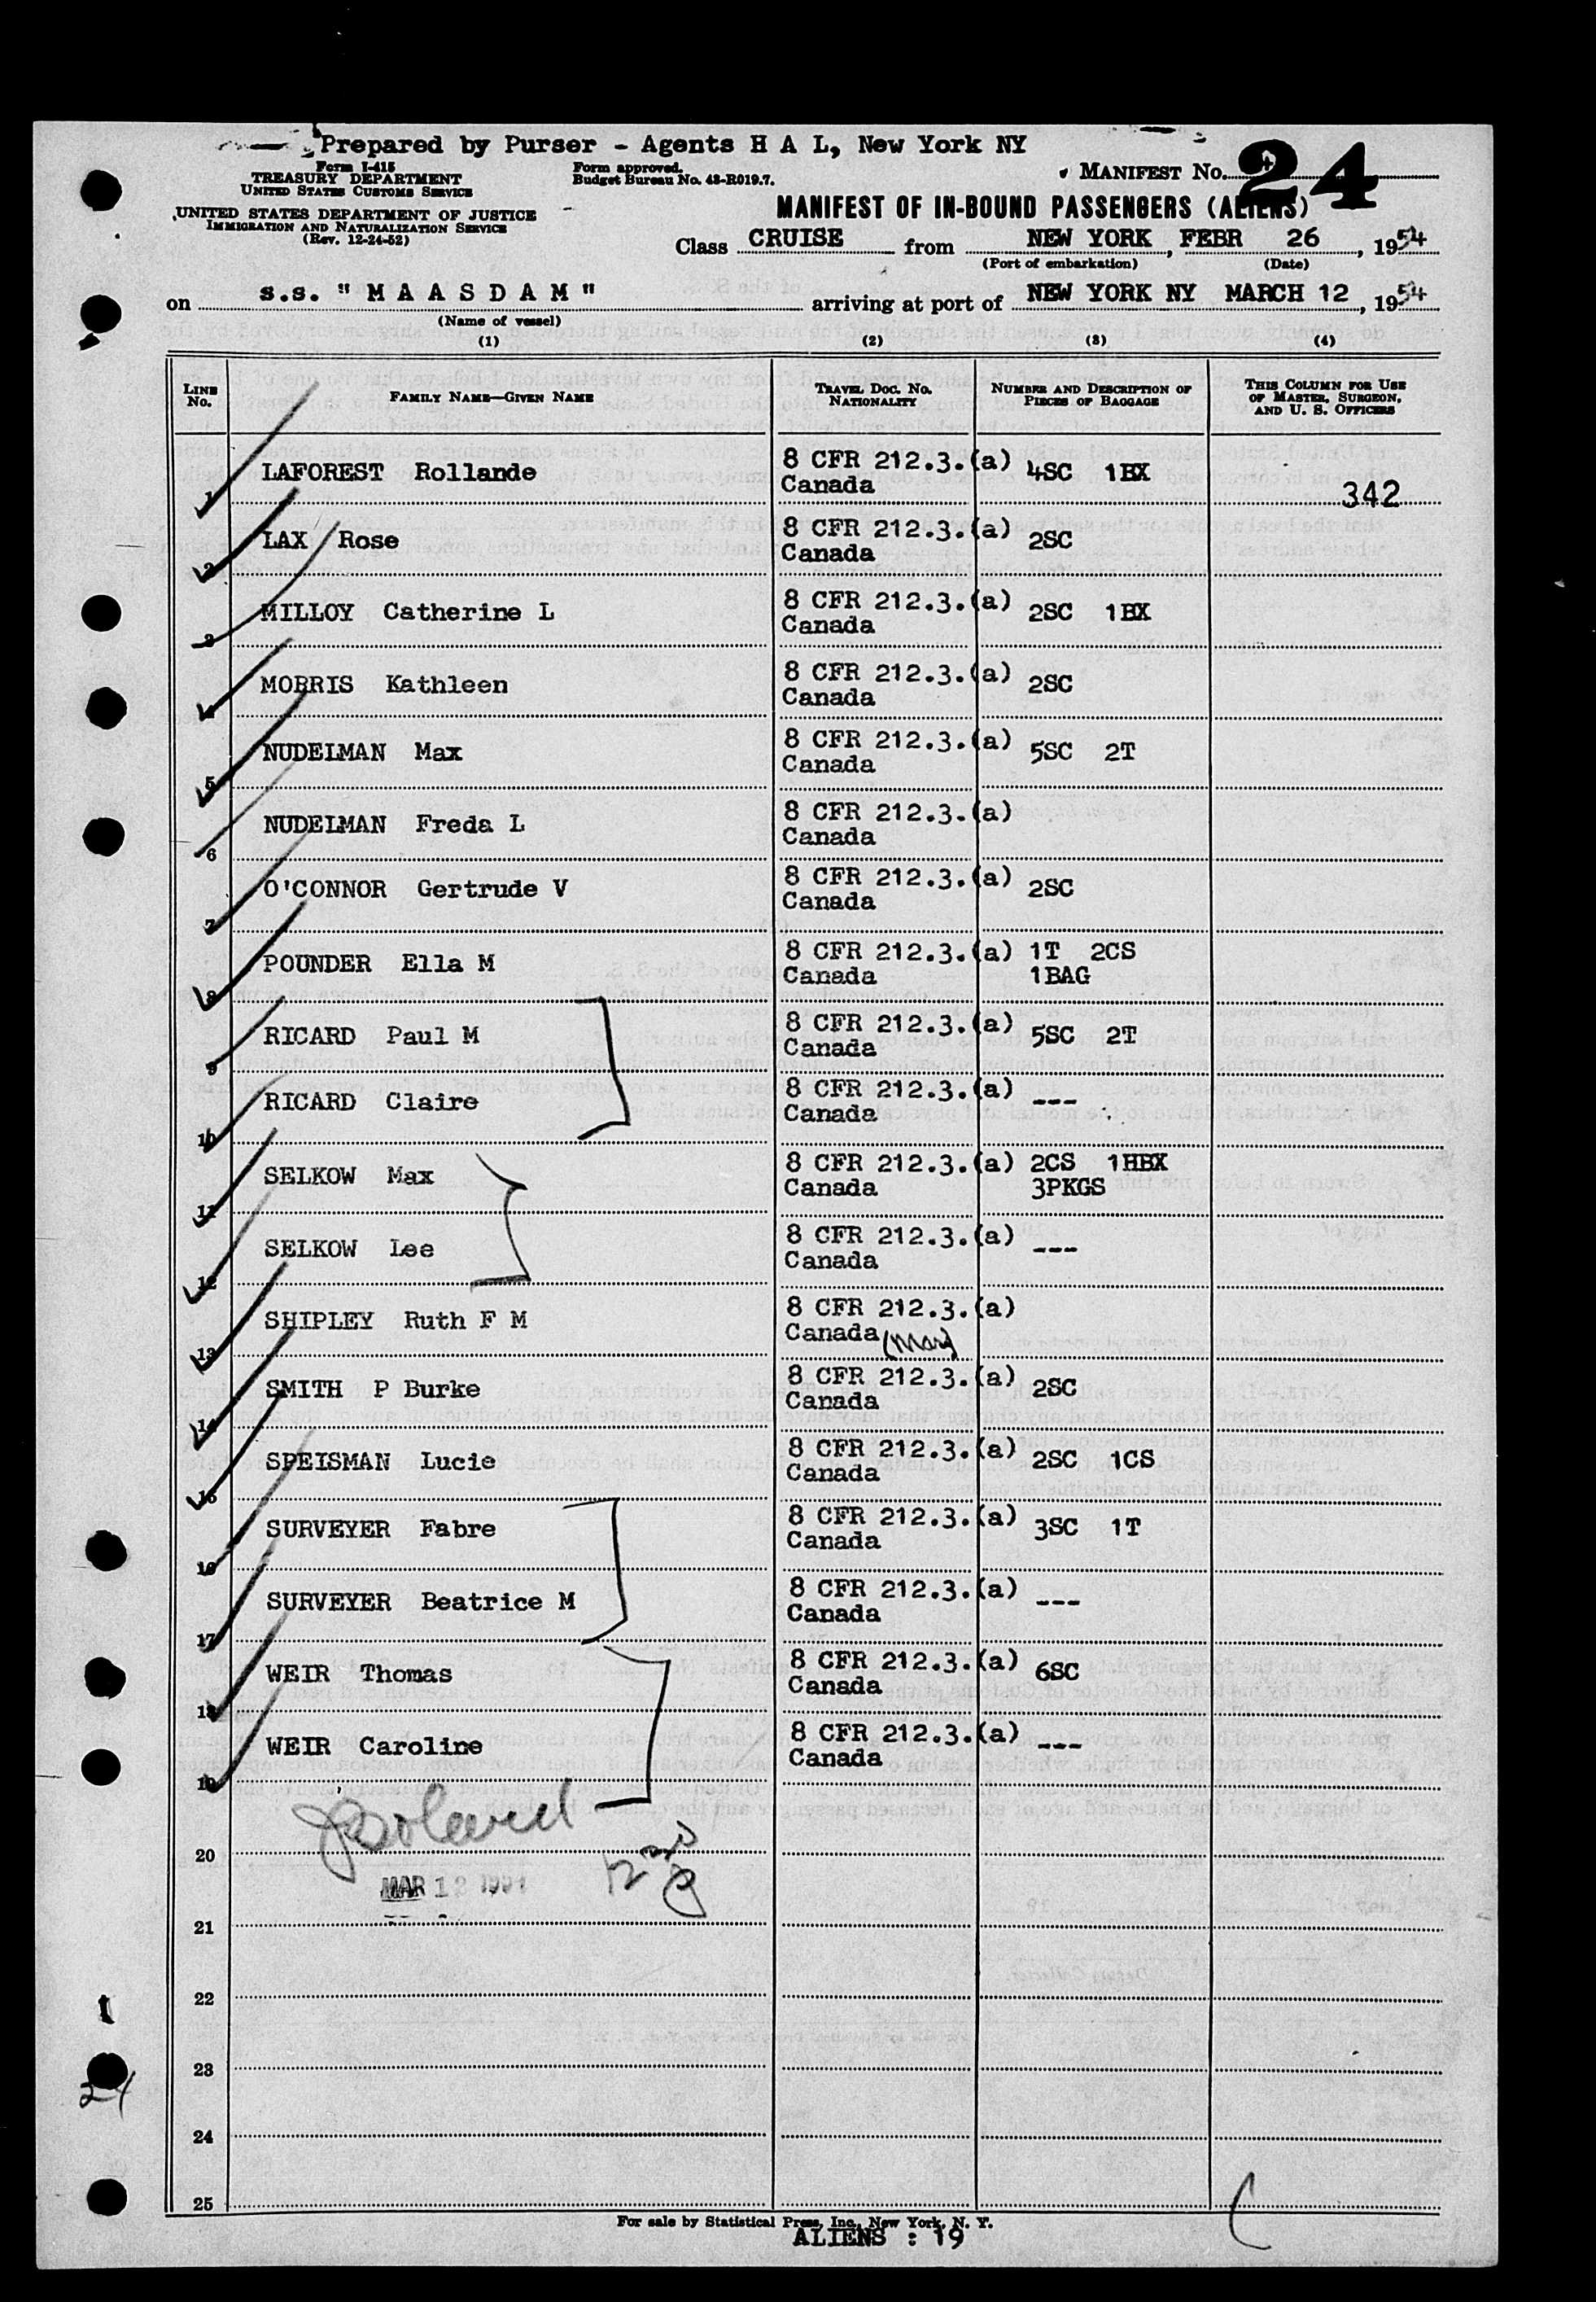 Prepared by Purser - Agents H A L, New York NY
Form I-415
TREASURY DEPARTMENT
UNITED STATES CUSTOMS SERVICE
Form approved.
Budget Bureau No. 43-R019.7.
MANIFEST No. 24
UNITED STATES DEPARTMENT OF JUSTICE
IMMIGRATION AND NATURALIZATION SERVICE
(Rev. 12-24-52)
MANIFEST OF IN-BOUND PASSENGERS (ALIENS)
Class CRUISE from NEW YORK, FEBR 26, 1954
(Port of embarkation) (Date)
on s.s. "MAASDAM" arriving at port of NEW YORK NY MARCH 12, 1954
(Name of vessel)
(1) (2) (3) (4)
LINE No. FAMILY NAME—GIVEN NAME TRAVEL DOC. NO. NATIONALITY NUMBER AND DESCRIPTION OF PIECES OF BAGGAGE THIS COLUMN FOR USE OF MASTER, SURGEON, AND U. S. OFFICERS
1 LAFOREST Rollande 8 CFR 212.3.(a) Canada 4SC 1BX 342
2 LAX Rose 8 CFR 212.3.(a) Canada 2SC
3 MILLOY Catherine L 8 CFR 212.3.(a) Canada 2SC 1BX
4 MORRIS Kathleen 8 CFR 212.3.(a) Canada 2SC
5 NUDELMAN Max 8 CFR 212.3.(a) Canada 5SC 2T
6 NUDELMAN Freda L 8 CFR 212.3.(a) Canada
7 O'CONNOR Gertrude V 8 CFR 212.3.(a) Canada 2SC
8 POUNDER Ella M 8 CFR 212.3.(a) Canada 1T 2CS 1BAG
9 RICARD Paul M 8 CFR 212.3.(a) Canada 5SC 2T
10 RICARD Claire 8 CFR 212.3.(a) Canada ---
11 SELKOW Max 8 CFR 212.3.(a) Canada 2CS 1HBX 3PKGS
12 SELKOW Lee 8 CFR 212.3.(a) Canada ---
13 SHIPLEY Ruth F M 8 CFR 212.3.(a) Canada
14 SMITH P Burke 8 CFR 212.3.(a) Canada 2SC
15 SPEISMAN Lucie 8 CFR 212.3.(a) Canada 2SC 1CS
16 SURVEYER Fabre 8 CFR 212.3.(a) Canada 3SC 1T
17 SURVEYER Beatrice M 8 CFR 212.3.(a) Canada ---
18 WEIR Thomas 8 CFR 212.3.(a) Canada 6SC
19 WEIR Caroline 8 CFR 212.3.(a) Canada ---
20
MAR 12
21
22
23
24
24
25
For sale by Statistical Press, Inc., New York, N. Y.
ALIENS : 19